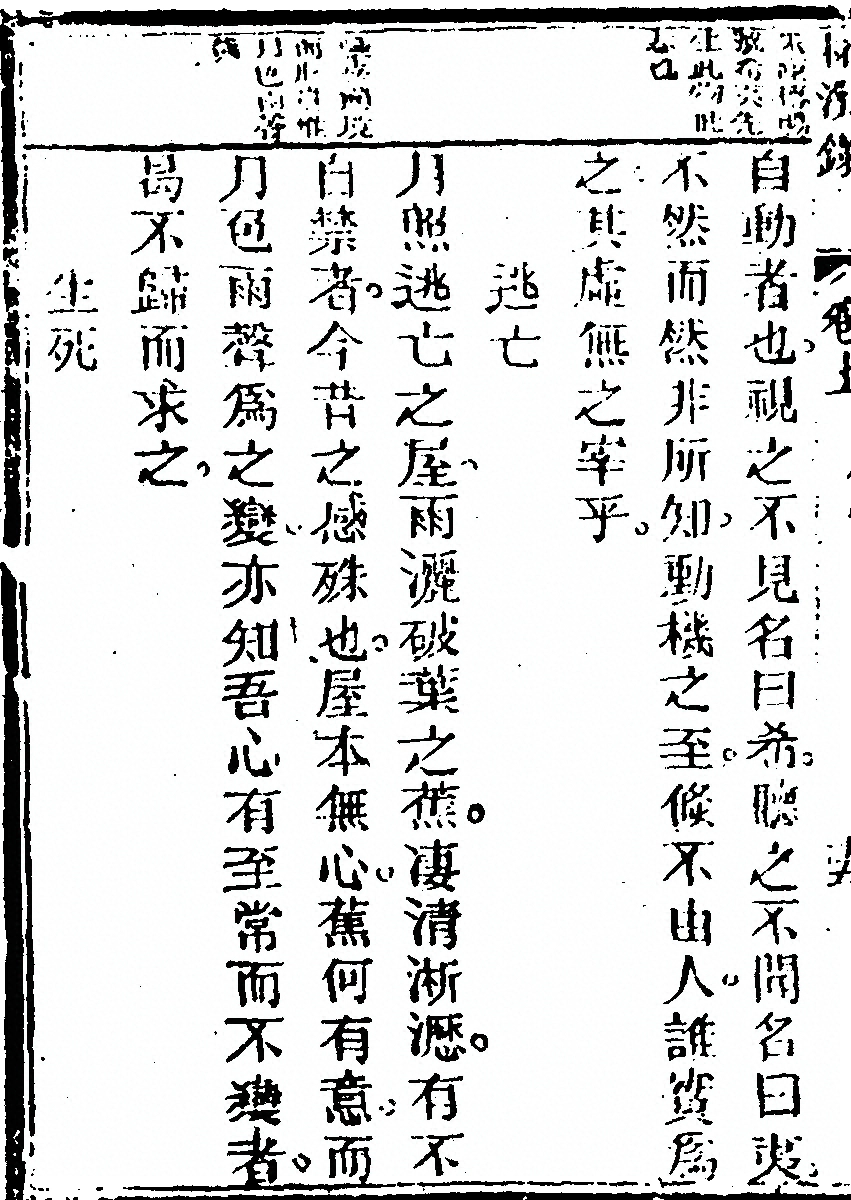 自動者也視之不見名曰希聽之不聞名曰夷
不然而然非所知動機之至倐不由人誰實為
之其虛無之宰乎
逃亡
月照逃亡之屋雨灑破葉之蕉凄清淅瀝有不
自禁者今昔之感殊也屋本無心蕉何有意而
月色雨聲爲之變亦知吾心有至常而不變者
曷不歸而求之
生死